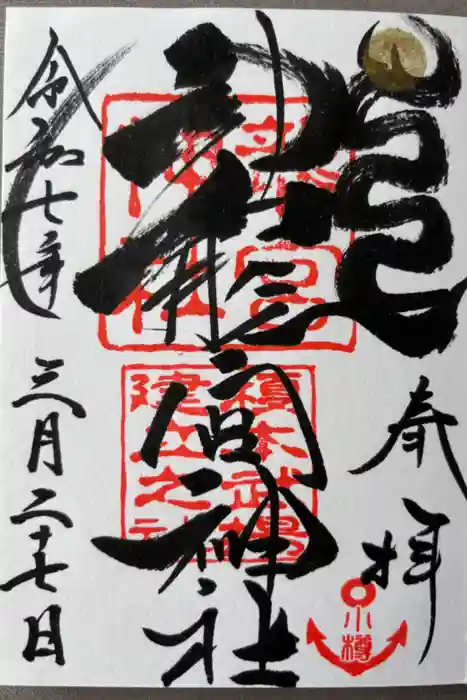 奉拝
小樽
龍宮神社
龍宮
神社
榎本武揚
建立之社
令和七年
三月二十七日